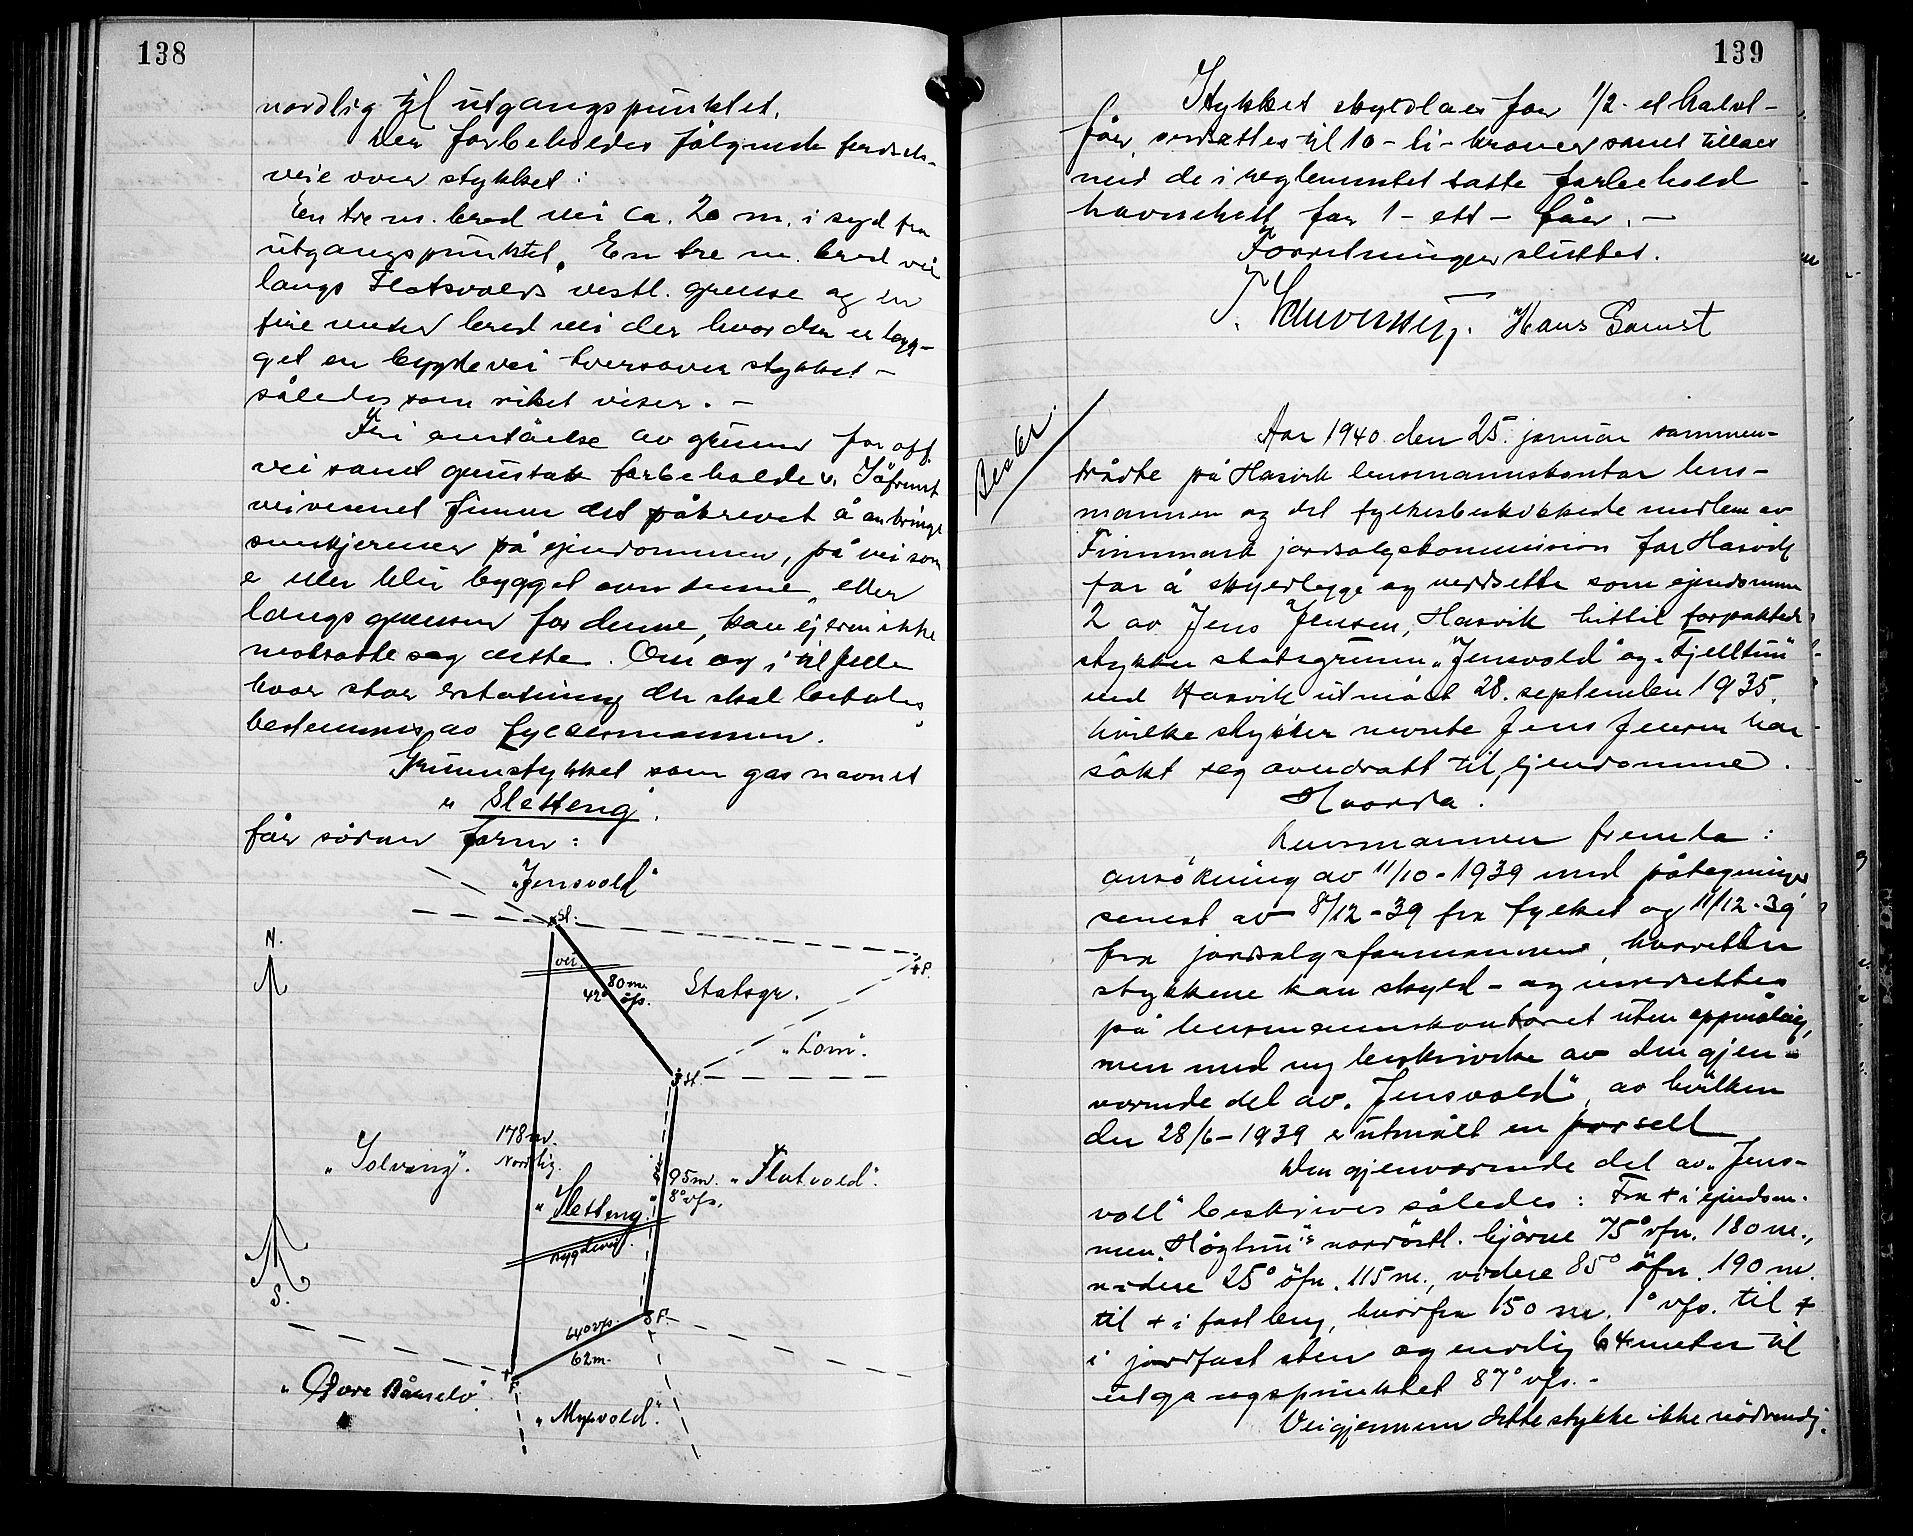 138
nordlig til utgangspunktet.
Der forbeholdes følgende ferdsels-
veie over stykket:
En tre m. bred vei ca. 20 m. i syd fra
utgangspunktet. En tre m. bred vei
langs Flatvolds vestl. grense og en
fire meter bred vei der hvor der er byg-
get en bygdevei tversover stykket -
således som riket viser. -
Fri avståelse av grunn for off.
vei samt grustak forbeholdes. Såfremt
veivesenet finner det påkrevet å anbringe
sneskjermer på eiendommen, på vei som
e eller blir bygget over denne, eller
langs grensen for denne, kan ejeren ikke
motsatte seg dette. Om og i tilfelle
hvor stor erstatning der skal betales,
bestemmes av fylkesmannen.
Grunnstykket som gas navnet
"Sletteng".
får sådan form:
"Jensvold"
N.
St.
vei.
80 m.
42° öfs.
Statsgr.
+P.
"Lom".
St.
178 m.
Nordlig.
"Solvang".
"Sletteng"
vei
95 m.
8° vfs.
"Flatvold".
bygdevei.
S.
64° vfs.
62 m.
F.
F
"Myrvold".
139
Stykket skyldlaes for 1/2 - et halvt -
före, verdsettes til 10 - ti - kroner samt tillaes
med de i reglementet satte forbehold
havnerett for 1 - ett - fåer. -
Forretningen sluttet.
Hans Gamst
Aar 1940 den 25. januar sammen-
trådte på Hasvik lensmannskontor lens-
mannen og det fylkesbeskikkede medlem av
Finnmark jordsalgskommisjon for Hasvik
for å skyldlegge og verdsette som ejendomme
2 av Jens Jensen, Hasvik hittil forpaktede
stykker statsgrunn "Jensvold" og "Fjelltun"
ved Hasvik utmålt 28. september 1935,
hvilke stykker nevnte Jens Jensen har
søkt seg avendratt til ejendomme.
Hvorda.
Lensmannen fremla:
ansökning av 11/10 - 1939 med påtegninger
senest av 8/12 - 39 fra fylket og 11/12 - 39
fra jordsalgsformannen, hvoretter
stykkene kan skyld - og verdsettes
på lensmannskontoret uten oppmåling,
men med ny beskrivelse av den gjen-
værende del av "Jensvold", av hvilken
der 28/6 - 1939 er utmålt en parsell
Den gjenværende del av "Jens-
voll" beskrives således: Fra + i ejendom-
men "Høgtun"s nordöstl. hjörne 75° vfn. 180 m.,
videre 25° öfn. 115 m., videre 85° öfn. 190 m.
til + i fast berg, hvorfra 150 m. 1° vfs. til +
i jordfast sten og endelig 64 meter til
utgangspunktet 87° vfs. -
Vei gjennem dette stykke ikke nödvendig.